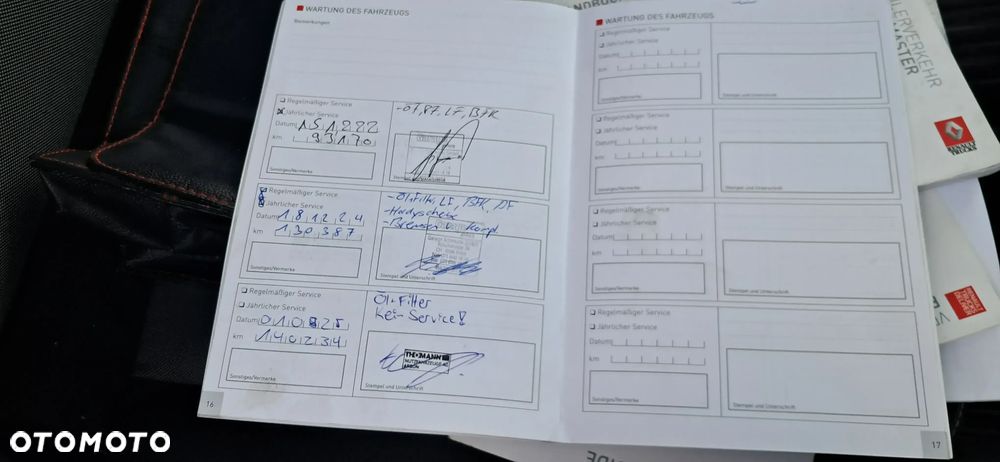 WARTUNG DES FAHRZEUGS
Bemerkungen
Regelmäßiger Service
Jährlicher Service
Datum 151222
km 93170
Sonstiges/Vermerke
LF, BFK
Regelmäßiger Service
Jährlicher Service
Datum 181224
km 130387
Sonstiges/Vermerke
- Ölfilter, LF, BFK, DF
- Hardyscheibe
- Bremsen kompl
Stempel und Unterschrift
Regelmäßiger Service
Jährlicher Service
Datum
km 140234
Sonstiges/Vermerke
Öl+Filter
kein Service!
THOMANN
NUTZFAHRZEUGE AG
ARBON
Stempel und Unterschrift
16
WARTUNG DES FAHRZEUGS
Regelmäßiger Service
Jährlicher Service
Datum
km
Sonstiges/Vermerke
Stempel und Unterschrift
Regelmäßiger Service
Jährlicher Service
Datum
km
Sonstiges/Vermerke
Stempel und Unterschrift
Regelmäßiger Service
Jährlicher Service
Datum
km
Sonstiges/Vermerke
Stempel und Unterschrift
Regelmäßiger Service
Jährlicher Service
Datum
km
Sonstiges/Vermerke
Stempel und Unterschrift
17
MASTER
RENAULT
TRUCKS
RENAULT
TRUCKS
OTOMOTO